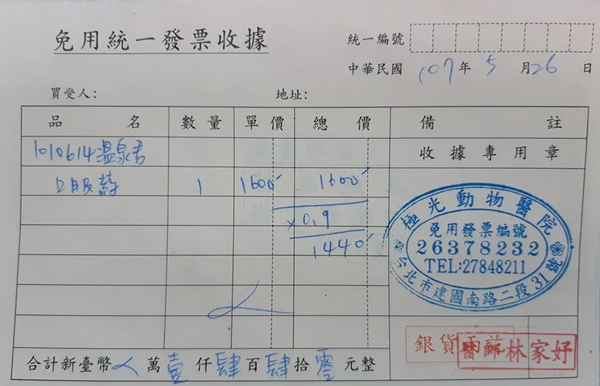 免用統一發票收據
統一編號
中華民國 107 年 5 月 26 日
買受人： 地址：
品名 數量 單價 總價 備註
收據專用章
1010614溫泉吉
口服藥 1 1600 1600
x0.9
1440
極光動物醫院
免用發票編號
26378232
TEL:27848211
台北市建國南路二段31號
銀貨
林家妤
合計新臺幣 萬壹仟肆百肆拾零元整